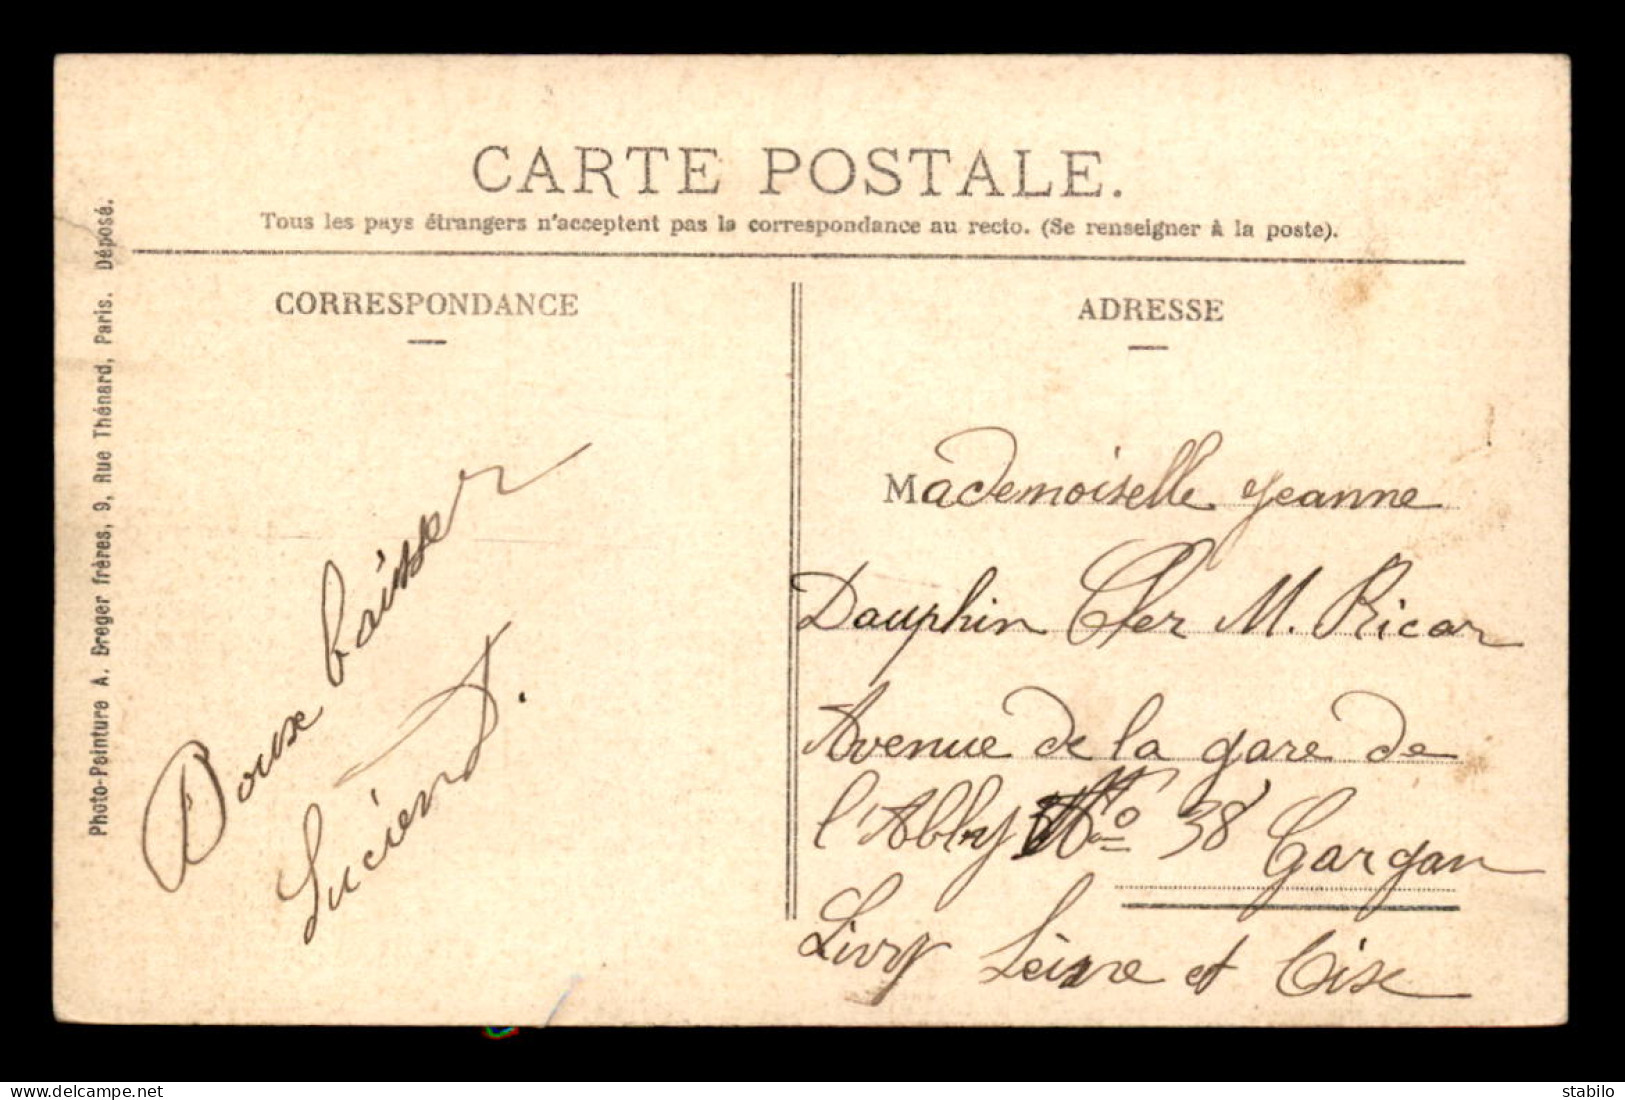 CARTE POSTALE.
Tous les pays étrangers n'acceptent pas la correspondance au recto. (Se renseigner à la poste).
Photo-Peinture A. Breger frères, 9, Rue Thénard, Paris. Déposé.
CORRESPONDANCE
Doux baiser
Lucien
ADRESSE
Mademoiselle Jeanne
Dauphin Cher M. Ricar
Avenue de la gare de
l'Abby No 38 Gargan
Livry Seine et Oise
www.delcampe.net
stabilo